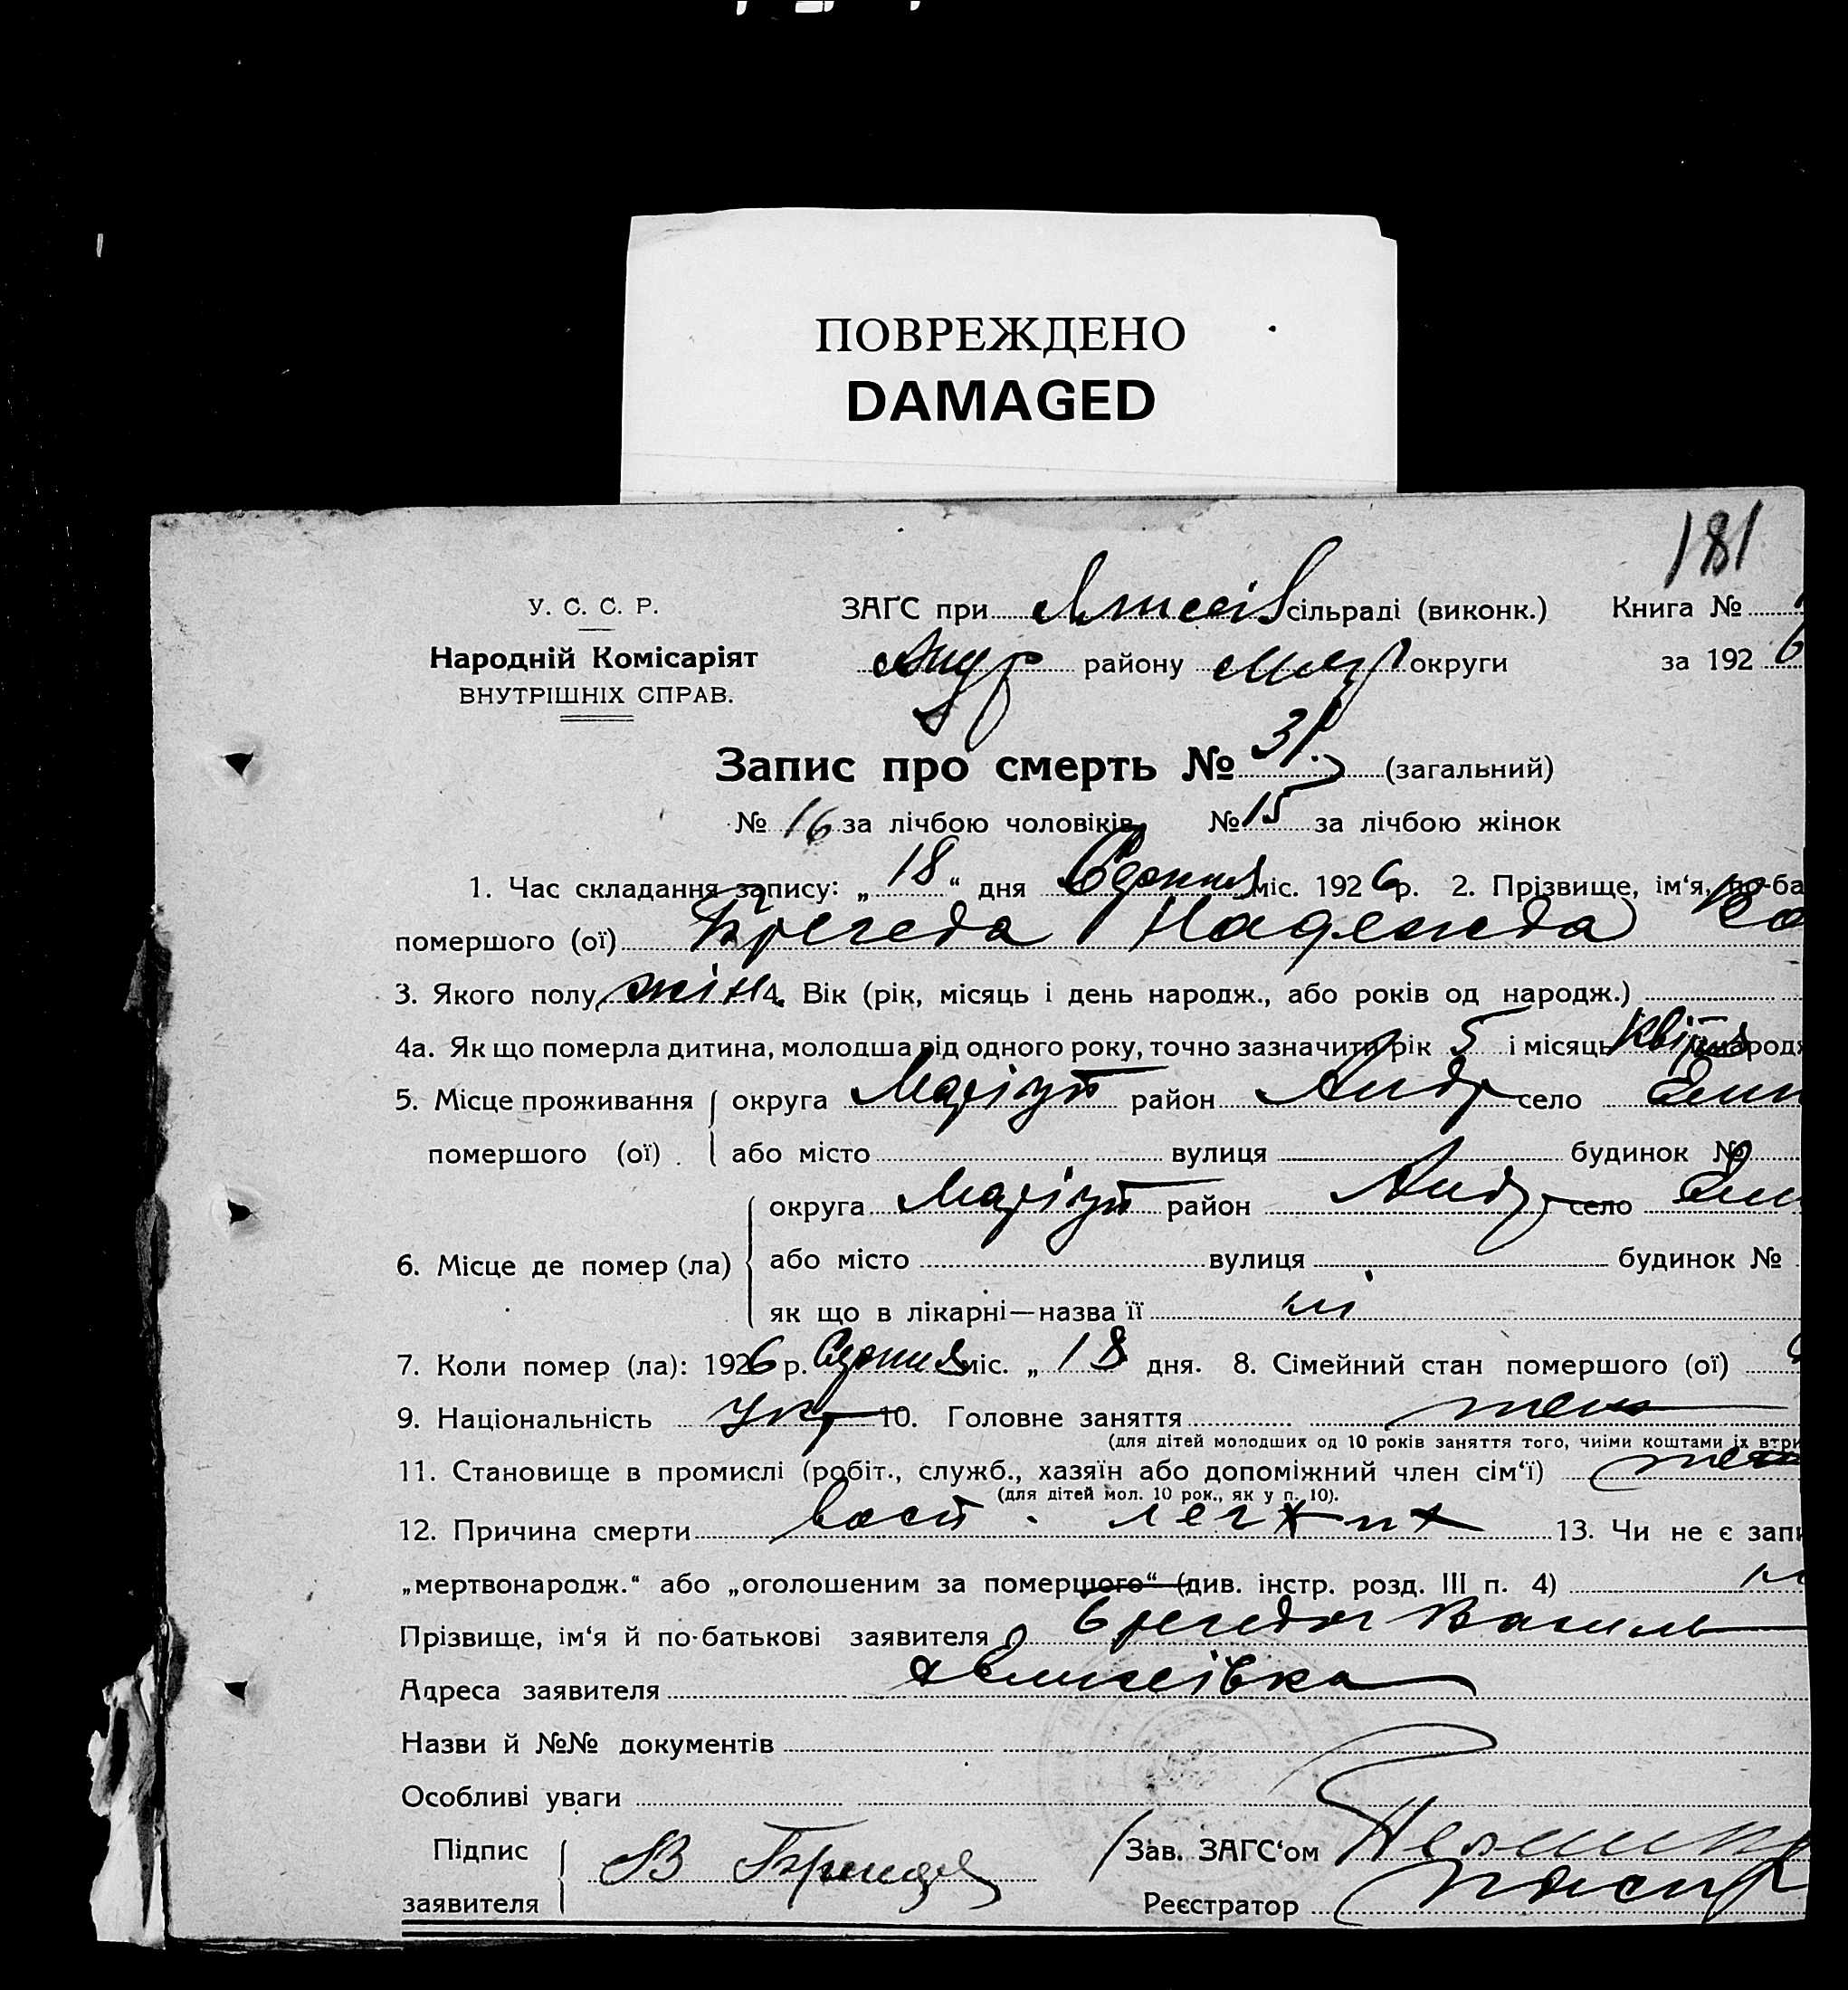 ПОВРЕЖДЕНО
DAMAGED
181
У. С. С. Р.
Народній Комісаріят
ВНУТРІШНІХ СПРАВ.
ЗАҐС при сільраді (виконк.) Книга №
Андр району округи за 1926
Запис про смерть № 31 (загальний)
№ 16 за лічбою чоловіків № 15 за лічбою жінок
1. Час складання запису: „ 18 “ дня Серпня міс. 1926 р. 2. Прізвище, ім‘я, по-ба
помершого (ої) Брегеда Надежда Ва
3. Якого полу жін 4. Вік (рік, місяць і день народж., або років од народж.)
4а. Як що померла дитина, молодша від одного року, точно зазначити рік 5 і місяць квітня народж
5. Місце проживання округа Маріуп район Андр село
помершого (ої) . або місто вулиця будинок №
округа Маріуп район Андр село
6. Місце де помер (ла) або місто вулиця будинок №
як що в лікарні—назва її ні
7. Коли помер (ла): 1926 р. Серпня міс. „ 18 дня. 8. Сімейний стан помершого (ої)
9. Національність укр 10. Головне заняття
(для дітей молодших од 10 років заняття того, чиїми коштами їх втри
11. Становище в промислі (робіт., служб., хазяїн або допоміжний член сім‘ї)
(для дітей мол. 10 рок., як у п. 10).
12. Причина смерти легких 13. Чи не є запи
„мертвонародж.“ або „оголошеним за помершого“ (див. інстр. розд. III п. 4)
Прізвище, ім‘я й по-батькові заявителя Брегеда Василь
Адреса заявителя Елисеївка
Назви й №№ документів
Особливі уваги
Підпис
заявителя В Брегеда
Зав. ЗАГС‘ом
Реєстратор